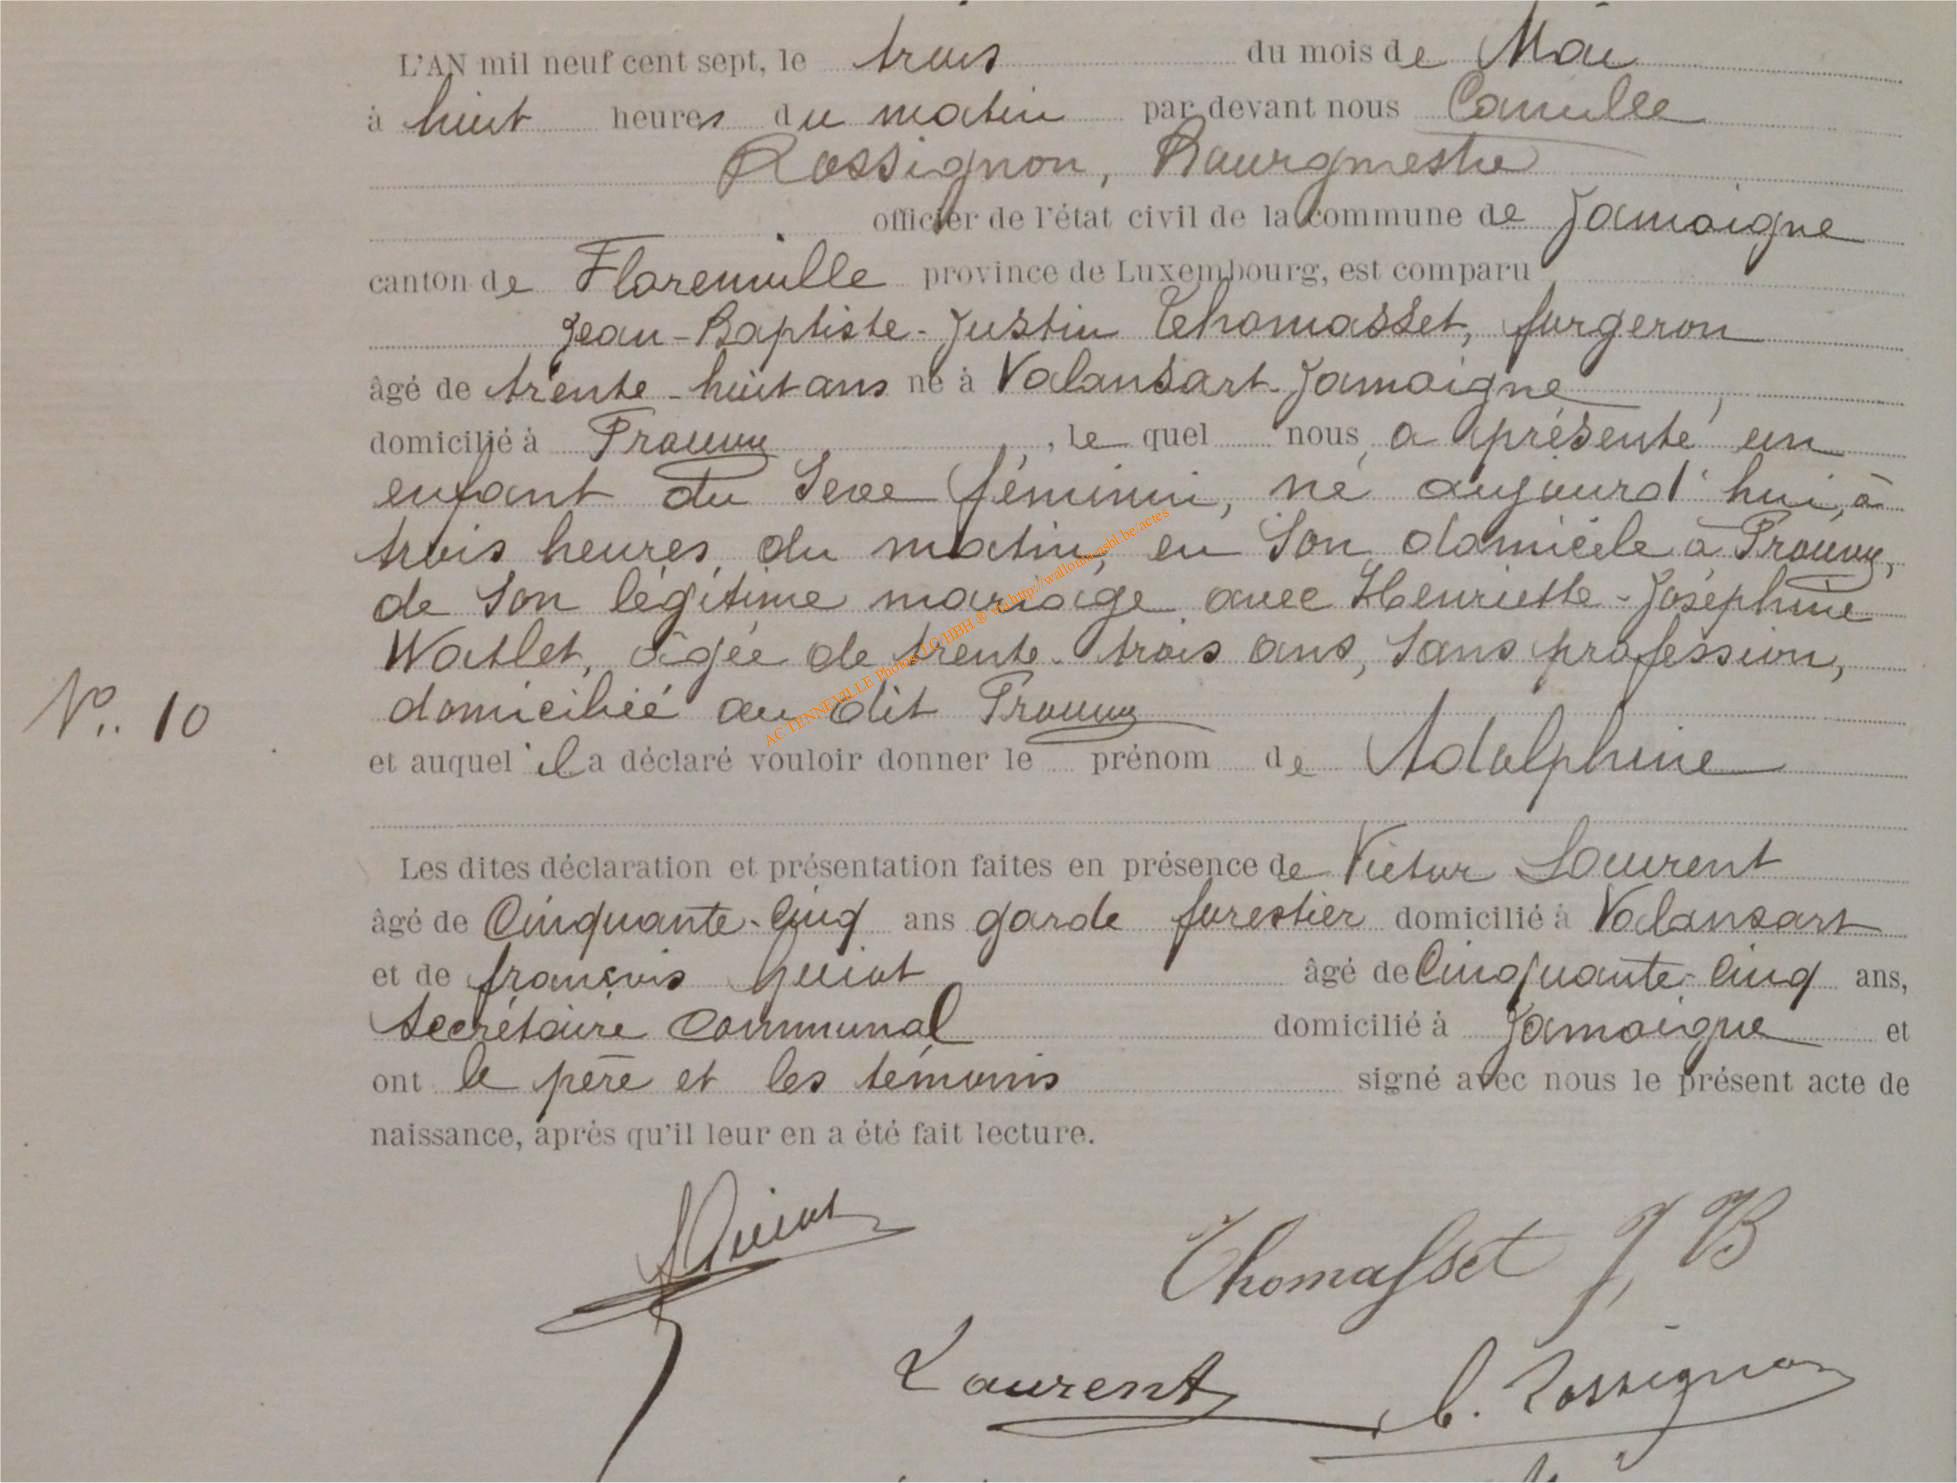 L'AN mil neuf cent sept, le trois du mois de Mai
à huit heures du matin par devant nous Camille
Rossignon, Bourgmestre
officier de l'état civil de la commune de Jamoigne
canton de Florenville province de Luxembourg, est comparu
Jean-Baptiste-Justin Thomasset, forgeron
âgé de trente-huit ans né à Valansart-Jamoigne,
domicilié à Prouvy, le quel nous a présenté un
enfant du sexe féminin, né aujourd'hui, à
trois heures du matin, en son domicile à Prouvy,
de son légitime mariage avec Henriette-Joséphine
Watlet, âgée de trente-trois ans, sans profession,
domiciliée au dit Prouvy
N°. 10
et auquel il a déclaré vouloir donner le prénom de Adolphine
Les dites déclaration et présentation faites en présence de Victor Laurent
âgé de Cinquante-cinq ans garde forestier domicilié à Valansart
et de françois Guiot âgé de Cinquante-cinq ans,
Secrétaire Communal domicilié à Jamoigne et
ont le père et les témoins signé avec nous le présent acte de
naissance, après qu'il leur en a été fait lecture.
Guiot
Thomasset J, B
Laurent
C. Rossignon
AC TENNEVILLE Photos LG HBH ® via http://wallonia-asbl.be/actes